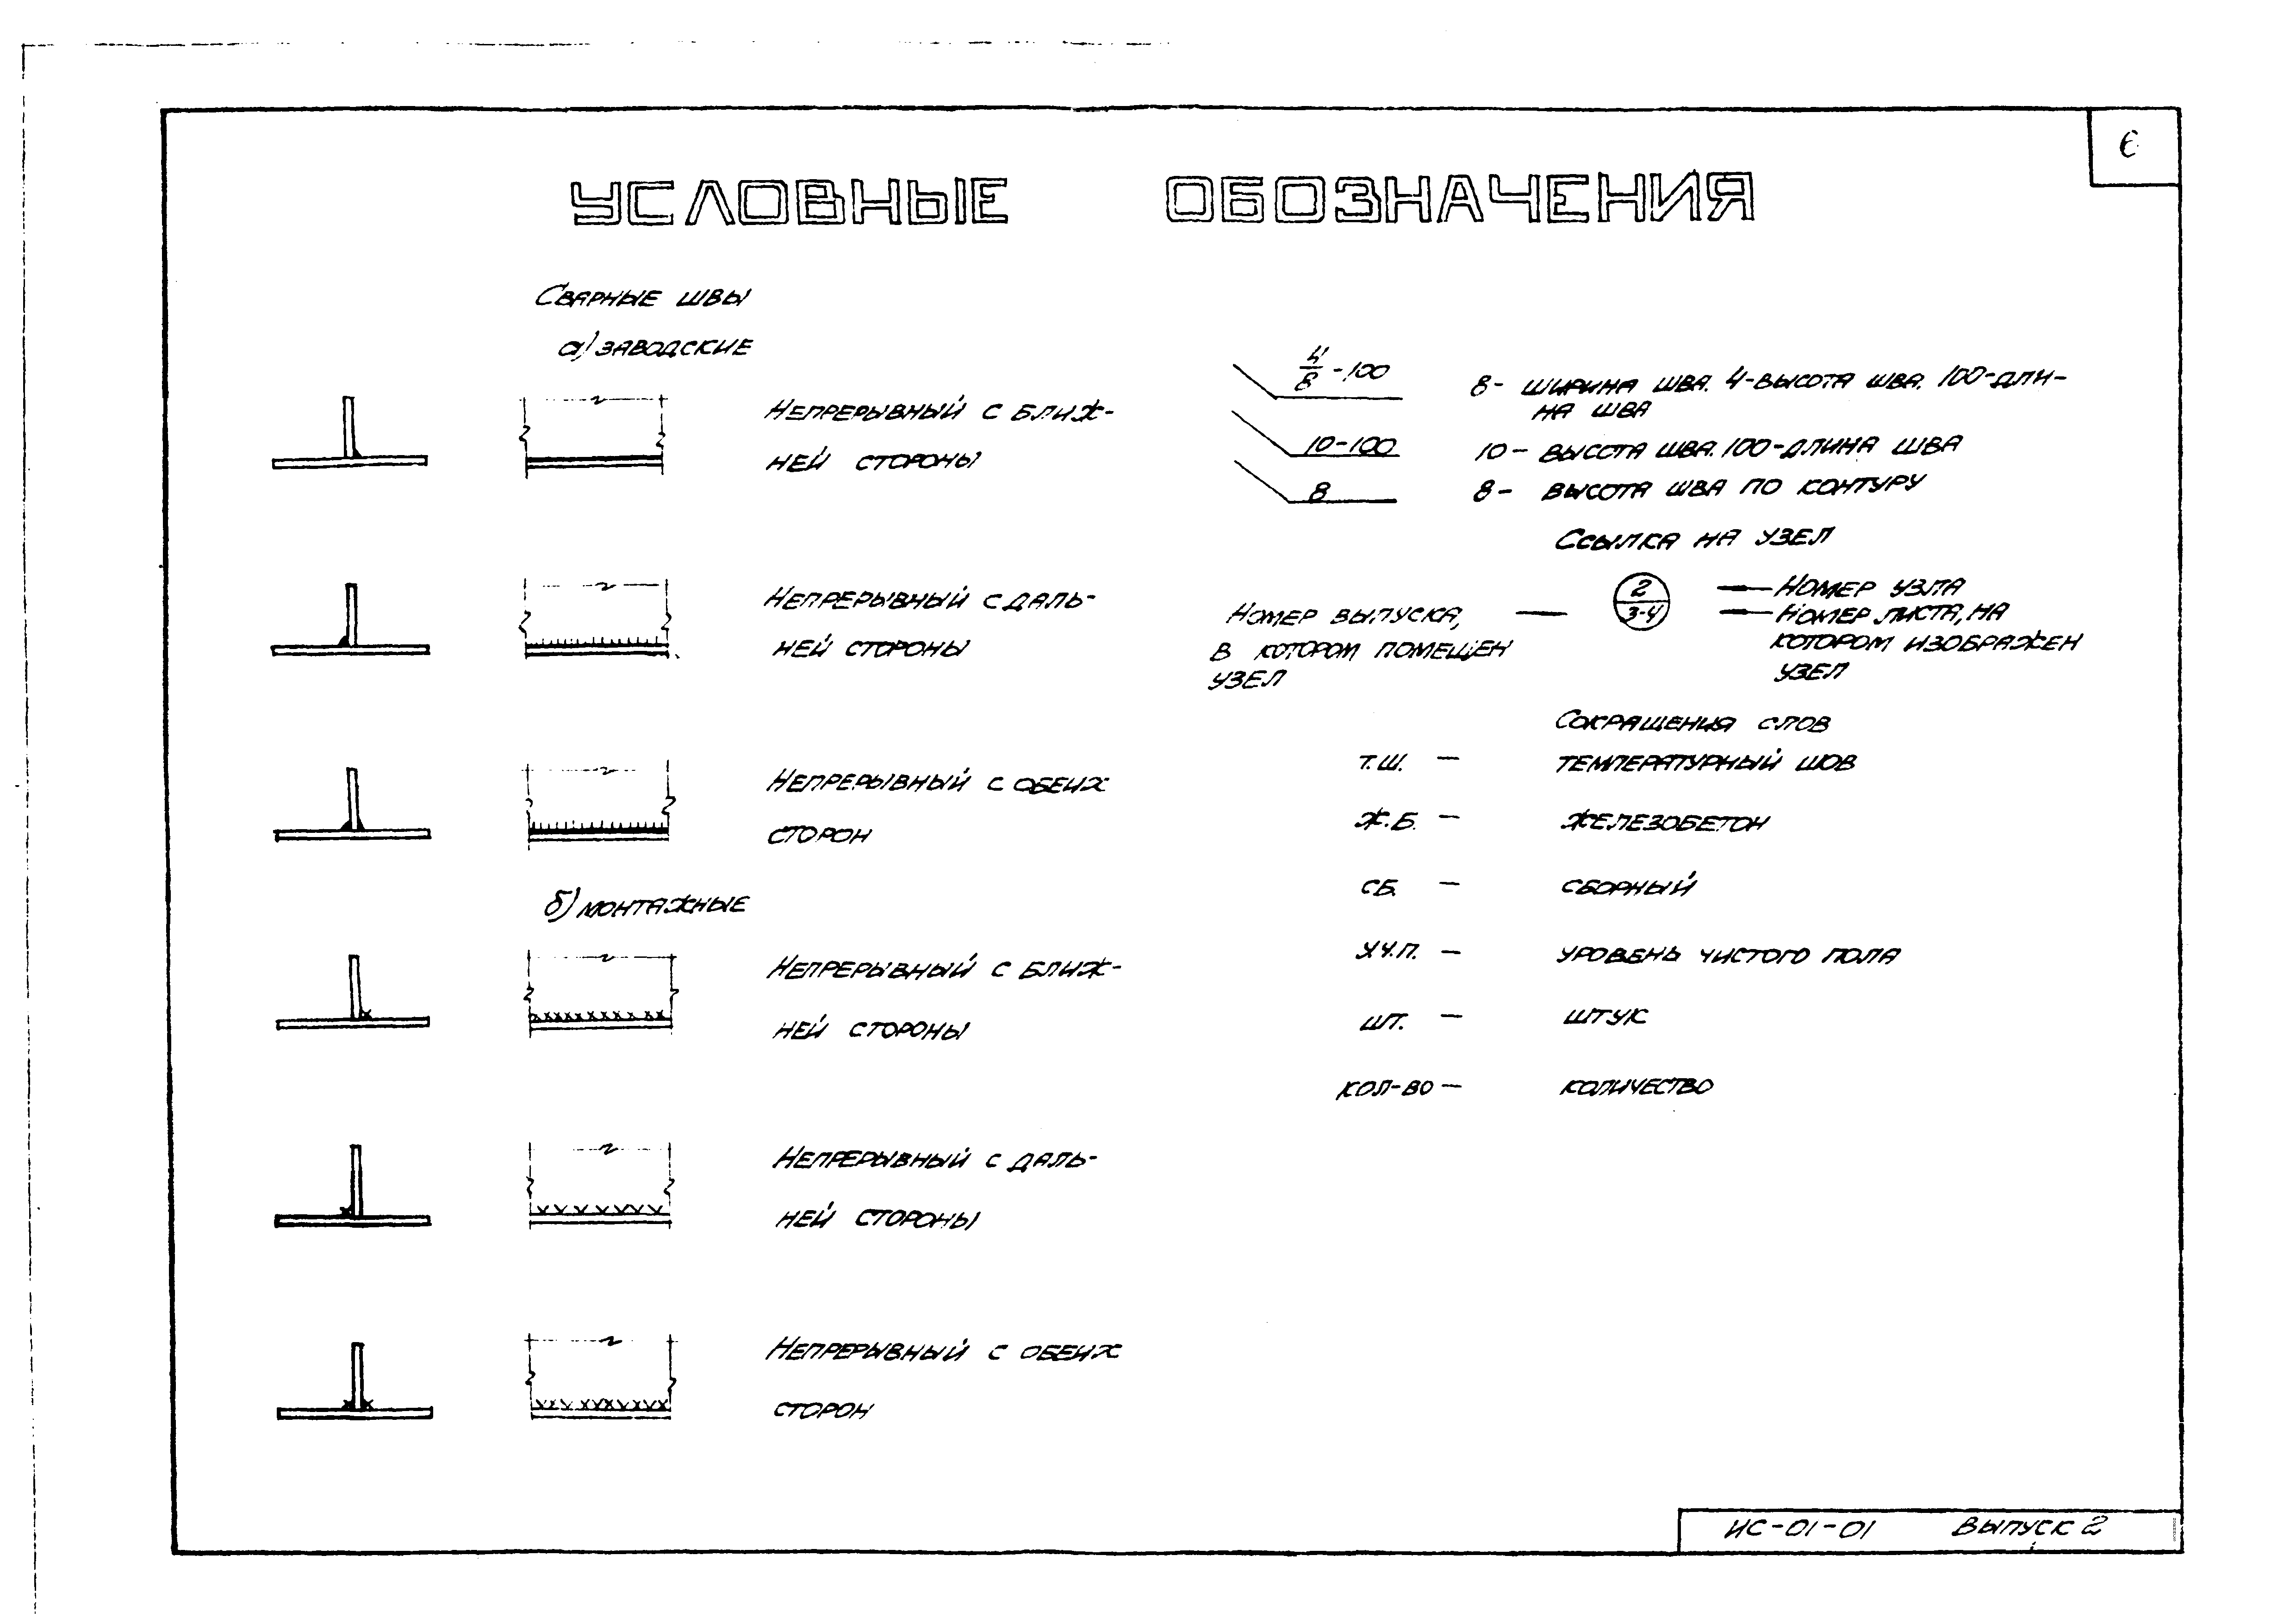 6
УСЛОВНЫЕ ОБОЗНАЧЕНИЯ
Сварные швы
а) заводские
Непрерывный с ближ-
ней стороны
Непрерывный с даль-
ней стороны
Непрерывный с обеих
сторон
б) монтажные
Непрерывный с ближ-
ней стороны
Непрерывный с даль-
ней стороны
Непрерывный с обеих
сторон
4/8 - 100
8- ширина шва. 4-высота шва. 100-дли-
на шва
10-100
10- высота шва. 100-длина шва
8
8- высота шва по контуру
Ссылка на узел
Номер выпуска,
в котором помещен
узел
2
3-4
Номер узла
Номер листа, на
котором изображен
узел
Сокращения слов
т.ш. — температурный шов
ж.б. — железобетон
сб. — сборный
уч.п. — уровень чистого пола
шт. — штук
кол-во — количество
ИС-01-01 Выпуск 2